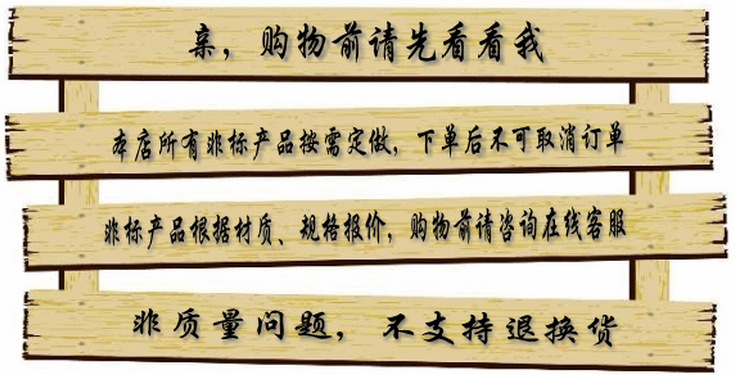 亲，购物前请先看看我
本店所有非标产品按需定做，下单后不可取消订单
非标产品根据材质、规格报价，购物前请咨询在线客服
非质量问题，不支持退换货